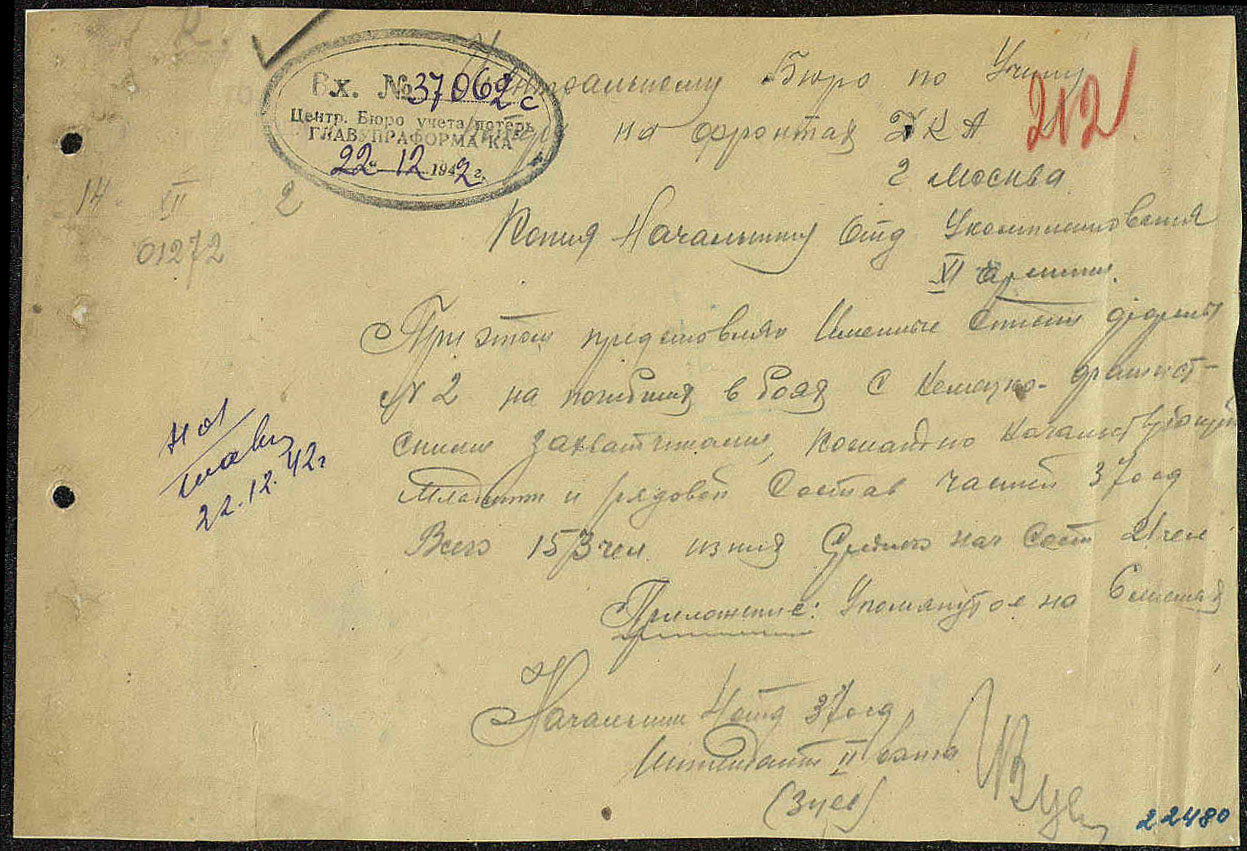 Вх. № 37062с
Центр. Бюро учета потерь
ГЛАВУПРАФОРМА КА
22 12 1942 г.
Центральному Бюро по Учету
потерь на фронтах КА
г Москва
212
14 XII 2
01272
Копия Начальнику Отд Укомплектования
XI армии.
При этом представляю Именные Списки форма
N 2 на погибших в боях с Немецко-фашист-
скими захватчиками, командно начальствующий
Младший и рядовой Состав частей 37осд
Всего 153 чел. из них Средн нач Сост 21 чел
Приложение: Упомянутое на 6 листах
22.12.42г
Начальник 4 отд 37осд
Интендант II ранга
(Зуев)
22480